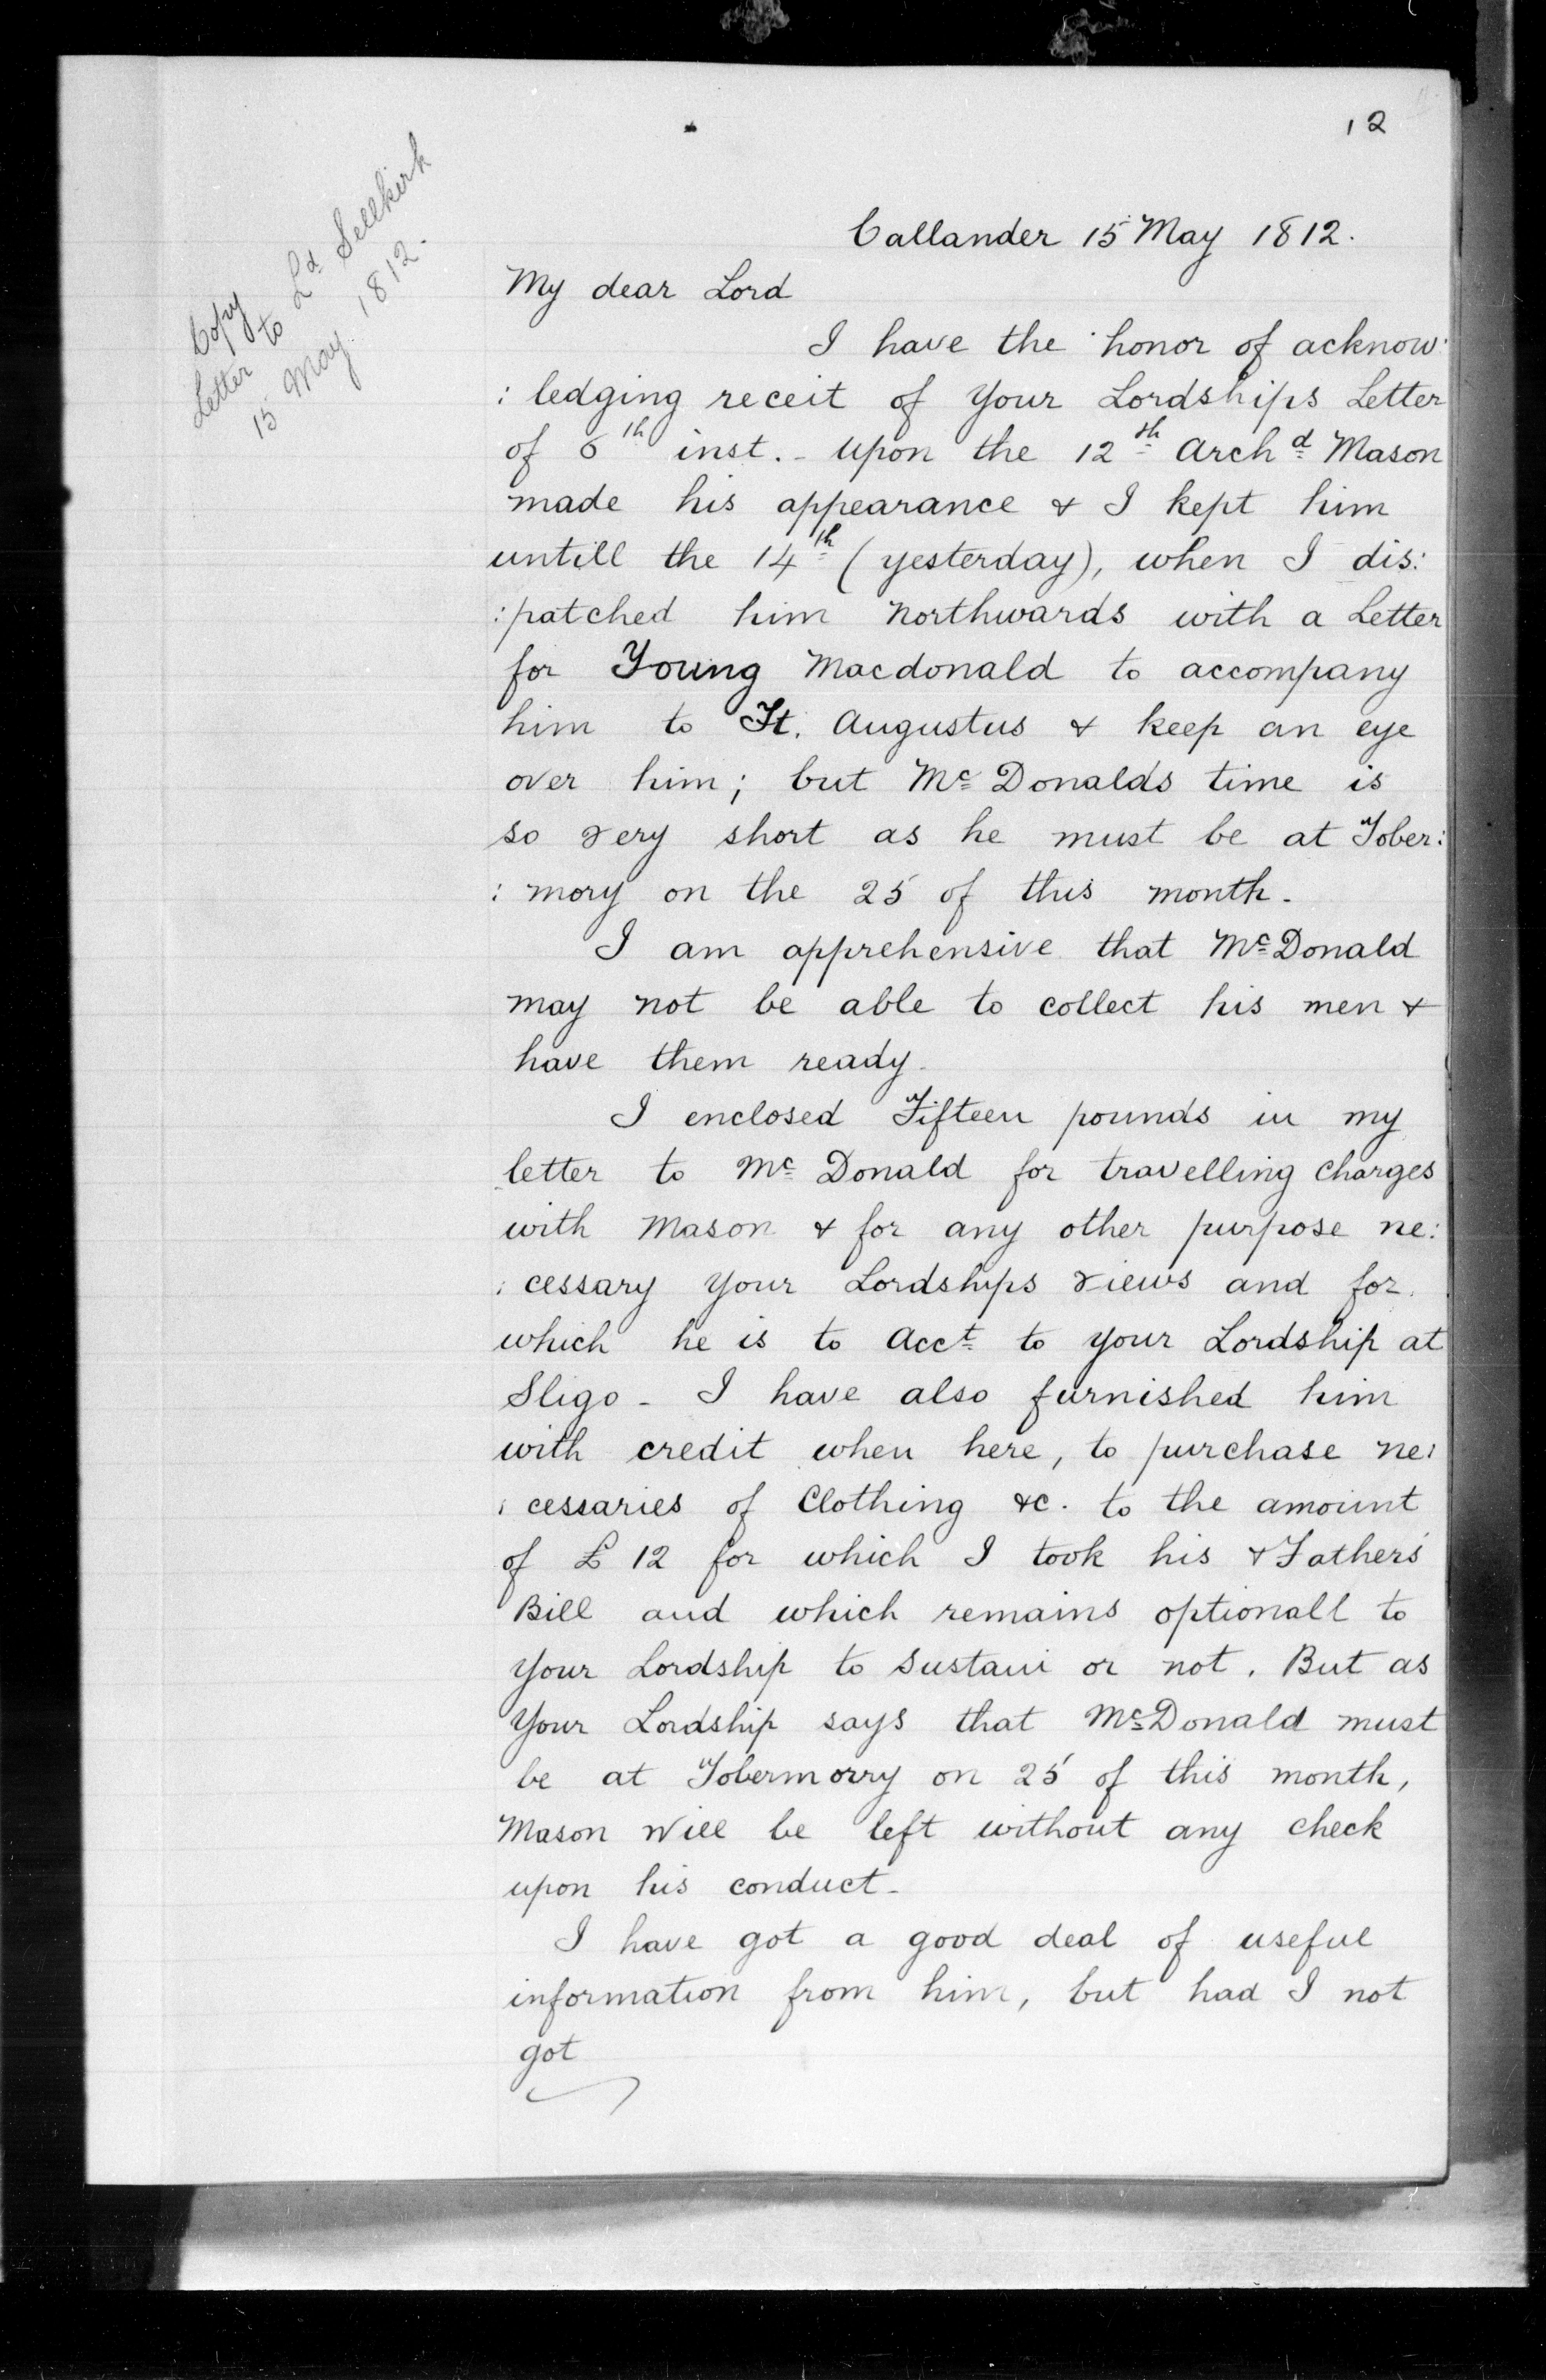 12
Copy
Letter to Ld Sellkirk
15 May 1812.
Callander 15 May 1812.
My dear Lord
I have the honor of acknow:
: ledging receit of your Lordships Letter
of 6th inst. - upon the 12th Archd Mason
made his appearance & I kept him
untill the 14th (yesterday), when I dis:
: patched him Northwards with a Letter
for Young Macdonald to accompany
him to Ft. Augustus & keep an eye
over him; but Mc Donalds time is
so very short as he must be at Tober:
: mory on the 25 of this month.
I am apprehensive that McDonald
may not be able to collect his men &
have them ready.
I enclosed Fifteen pounds in my
letter to Mc Donald for travelling charges
with Mason & for any other purpose ne:
: cessary your Lordships views and for
which he is to Acct to your Lordship at
Sligo - I have also furnished him
with credit when here, to purchase ne:
: cessaries of Clothing &c. to the amount
of £ 12 for which I took his & Fathers
Bill and which remains optionall to
your Lordship to sustain or not. But as
your Lordship says that McDonald must
be at Tobermorry on 25 of this month,
Mason will be left without any check
upon his conduct -
I have got a good deal of useful
information from him, but had I not
got